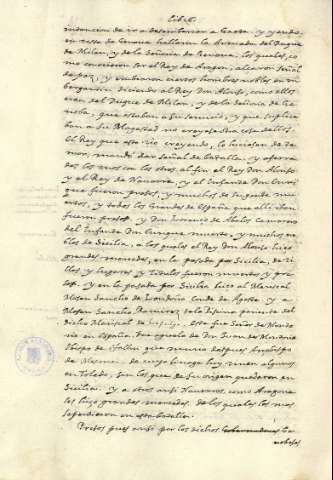 Libro
intencion de ir a descercar a Gaeta. y yendo,
en esta de Genova hallaron la Armada del Duque
de Milan, y de la Señoria de Genova, los quales, co
mo conocieron ser el Rey de Aragon, alzaron señal
de paz, y embiaron ciertos hombres nobles en un
bergantin diciendo al Rey Don Alonso, como ellos
eran del Duque de Milan, y de la Señoria de Ge
nova, que estaban a su servicio, y que suplica
ban a su Magestad no
El Rey que esto vio creyendo, lo hacian de te
mor, mandó dar señal de batalla. y aferra
dos los unos con los otros al fin el Rey Don Alonso
y el Rey de Navarra, y el Infante Don Enrriq
que fueron presos, y muchos de su gente mu
ertos, y todos los Grandes de España que alli iban
fueron presos. y Don de Abalos Camarero
del Infante Don Enrique muerto, y muchos no
bles de Sicilia, a los quales el Rey Don Alonso hizo
grandes mercedes, en la pasada por Sicilia, de vi
llas y lugares y titulos fueron muertos y pre
sos. y en la pasada por Sicilia hizo al Mariscal
Mosen Sancho de Londoño Conde de y a
Mosen Sancho Ramirez pariente del
dicho Mariscal de este fue Señor de
en España. fue aguelo de Don Juan de
Obispo de que murio despues Arzobispo
de de cuyo linage hoy viven algunos
en Toledo, son los que de su origen quedaron en
Sicilia. y a otros assi Navarros como Aragone
ses hizo grandes mercedes. de los quales los mas
se perdieron en esta batalla.
Presos pues assi por los dichos Ge
noveses